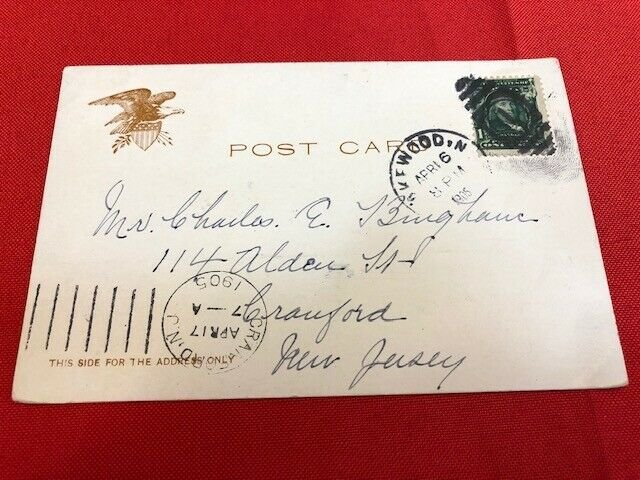 POST CARD
APR 6
1905
Mr. Charles. E. Bingham
114 Alden St
Cranford
New Jersey
CRANFORD, N.J.
APR 17
7-A
1905
THIS SIDE FOR THE ADDRESS ONLY